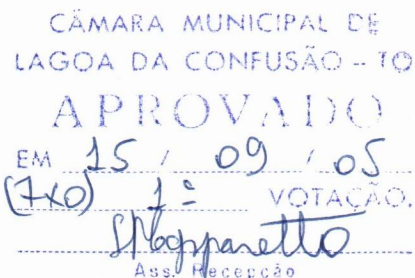 CÂMARA MUNICIPAL DE
LAGOA DA CONFUSÃO - TO
APROVADO
EM 15 / 09 / 05
(7x0) 1ª VOTAÇÃO.
Ass. Recepção